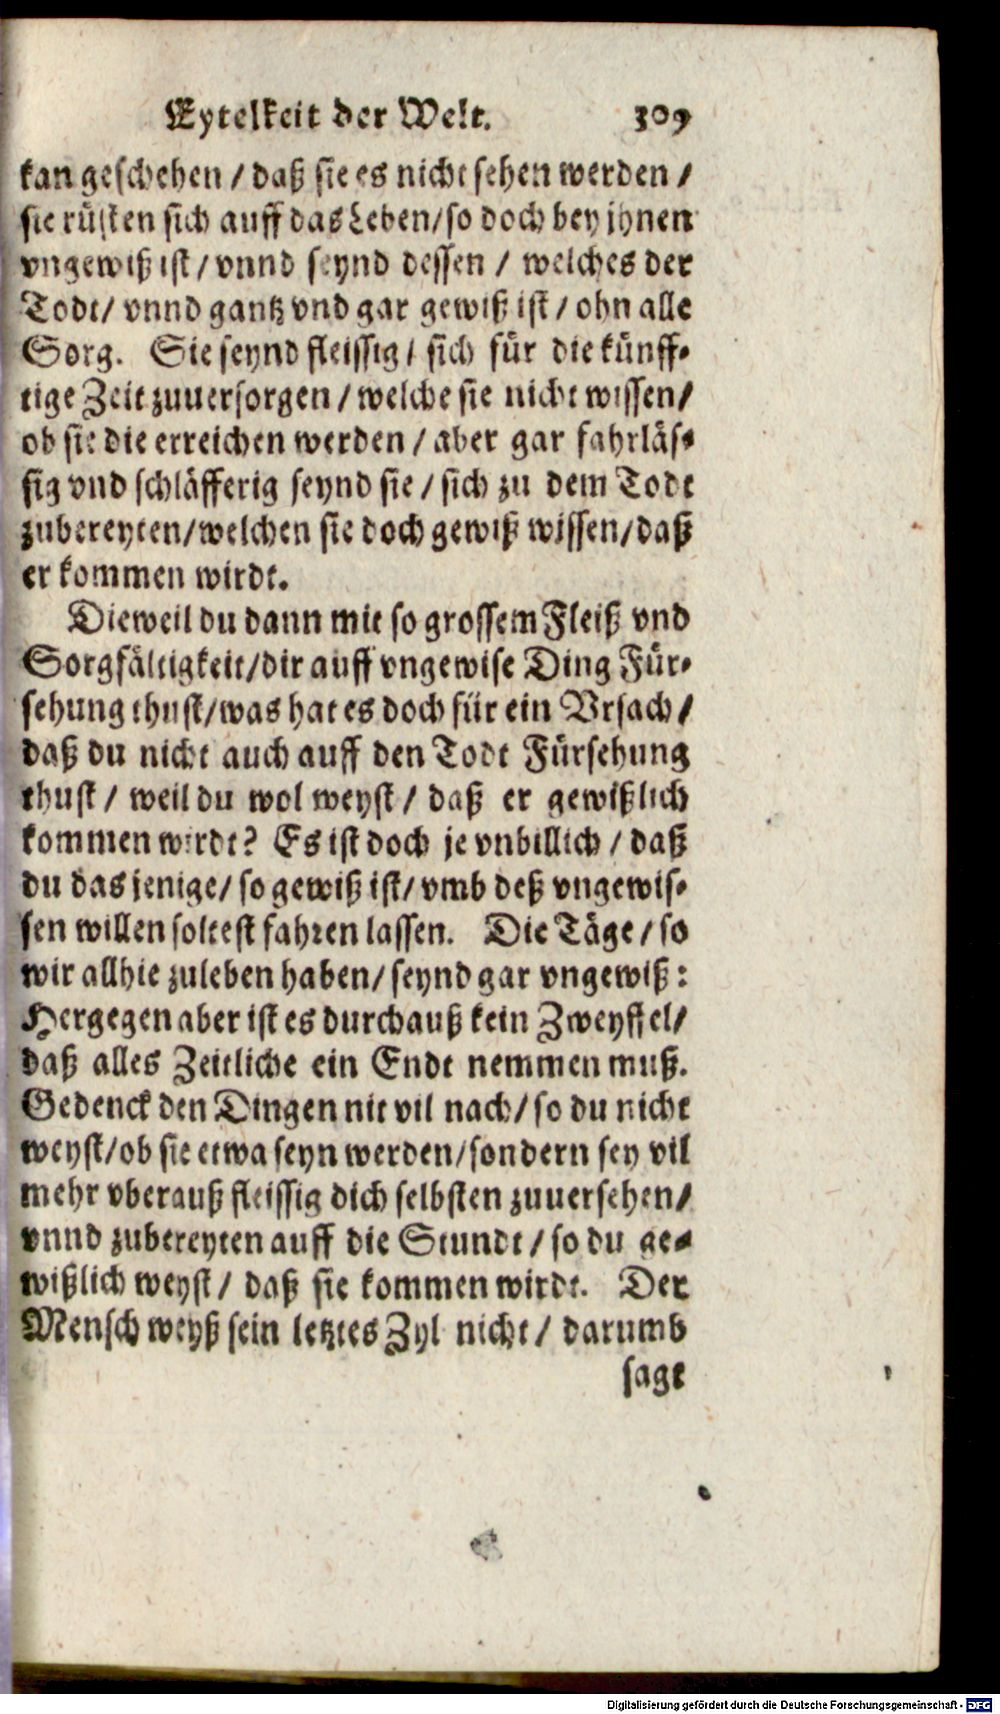 Eytelkeit der Welt. 309
kan geschehen / daß sie es nicht sehen werden /
sie rüsten sich auff das Leben/so doch bey jhnen
vngewiß ist / vnnd seynd dessen / welches der
Todt/ vnnd gantz vnd gar gewiß ist / ohn alle
Sorg. Sie seynd fleissig / sich für die künff-
tige Zeit zuuersorgen / welche sie nicht wissen/
ob sie die erreichen werden / aber gar fahrläs-
sig vnd schläfferig seynd sie / sich zu dem Todt
zubereyten/welchen sie doch gewiß wissen/daß
er kommen wirdt.
Dieweil du dann mit so grossem Fleiß vnd
Sorgfältigkeit/dir auff vngewise Ding Für-
sehung thust/was hat es doch für ein Vrsach/
daß du nicht auch auff den Todt Fürsehung
thust / weil du wol weyst / daß er gewißlich
kommen wirdt? Es ist doch je vnbillich / daß
du das jenige/ so gewiß ist/ vmb deß vngewis-
sen willen soltest fahren lassen. Die Täge / so
wir allhie zuleben haben/ seynd gar vngewiß:
Hergegen aber ist es durchauß kein Zweyffel/
daß alles Zeitliche ein Endt nemmen muß.
Gedenck den Dingen nit vil nach/ so du nicht
weyst/ob sie etwa seyn werden/sondern sey vil
mehr vberauß fleissig dich selbsten zuuersehen/
vnnd zubereyten auff die Stundt / so du ge-
wißlich weyst / daß sie kommen wirdt. Der
Mensch weyß sein letztes Zyl nicht / darumb
sagt
Digitalisierung gefördert durch die Deutsche Forschungsgemeinschaft - DFG